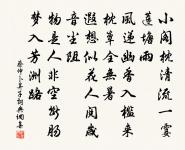 小閣枕清流一霎
蓮塘雨
風遞幽香入檻來
枕簟全無暑
遐想似花人閱歲
音塵阻
物是人非空斷腸
夢入芳洲路
蔡伸卜算子詞